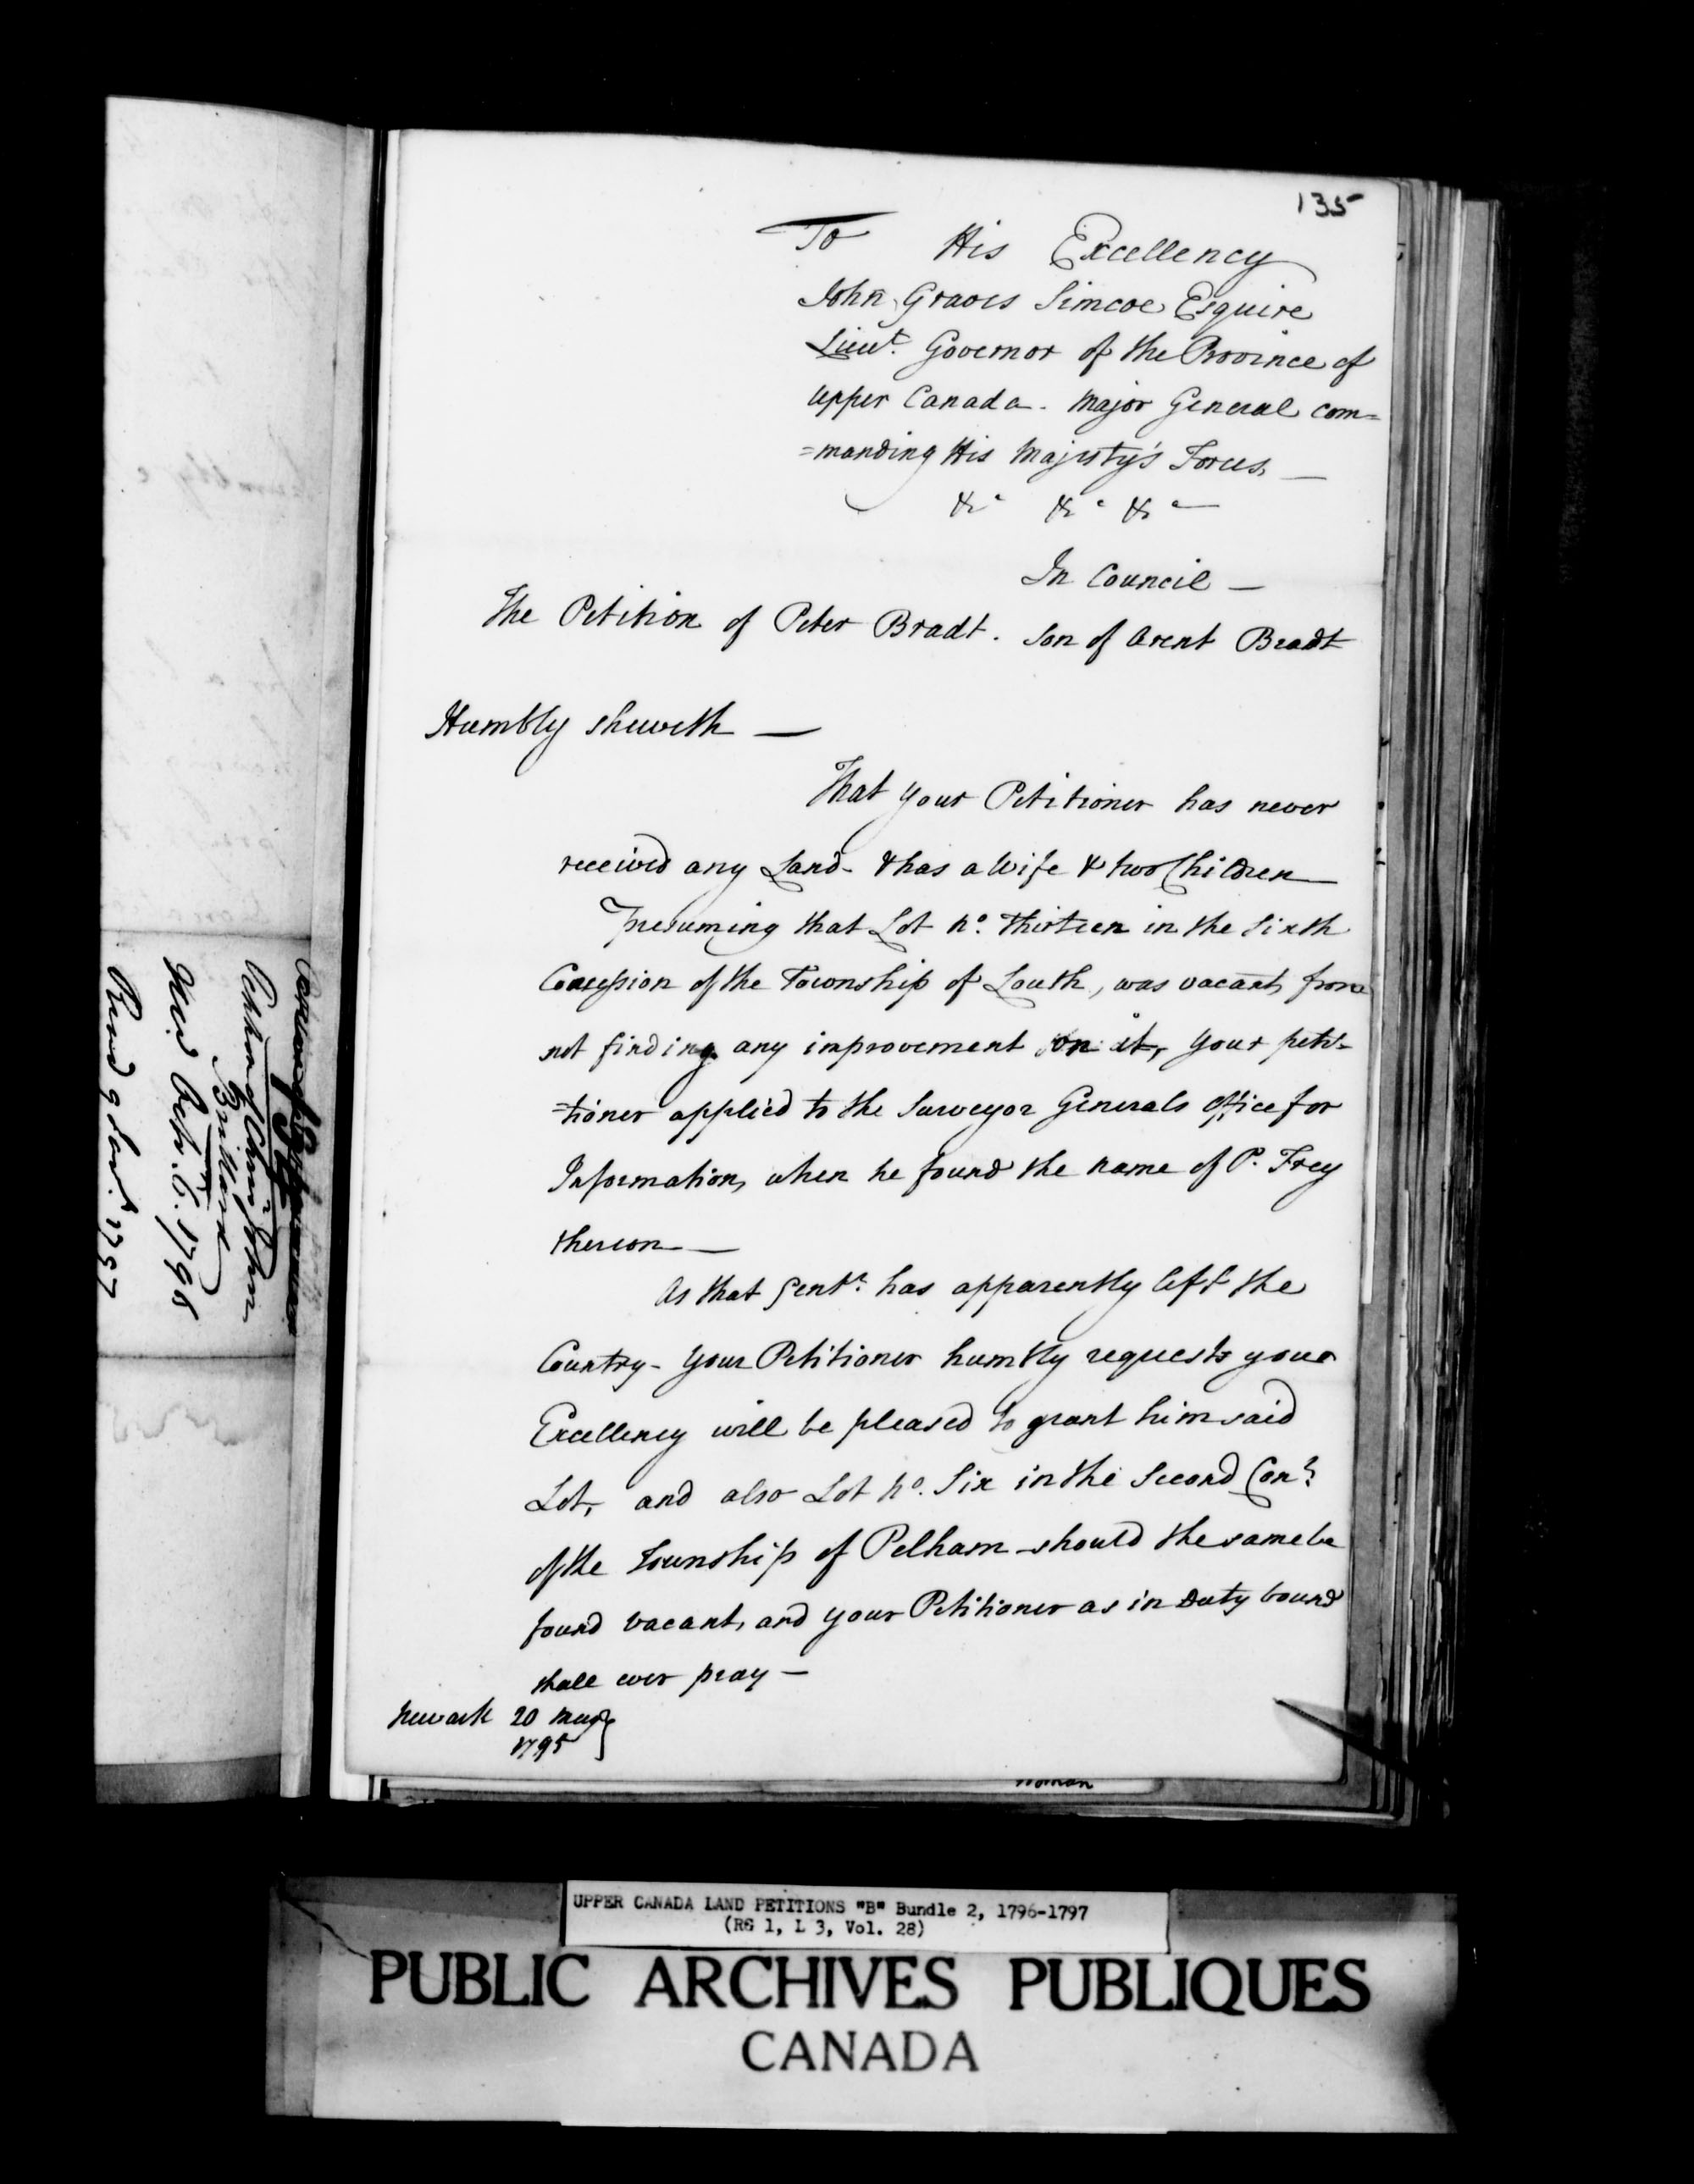 135
To His Excellency
John Graves Simcoe Esquire
Lieut. Governor of the Province of
Upper Canada. Major General com=
=manding His Majesty's Forces, —
&c &c &c —
In Council —
The Petition of Peter Bradt. Son of Arent Bradt
Humbly sheweth —
That your Petitioner has never
received any Land - & has a Wife & two Children
Presuming that Lot No. Thirteen in the Sixth
Concession of the Township of Louth, was vacant, from
not finding any improvement on it, your peti=
=tioner applied to the Surveyor Generals Office for
Information, when he found the name of P. Frey
thereon —
As that Gentn. has apparently left the
Country - Your Petitioner humbly requests your
Excellency will be pleased to grant him said
Lot, and also Lot No. Six in the Second Con.
of the Township of Pelham - should the same be
found vacant, and your Petitioner as in Duty bound
shall ever pray —
Newark 20 May
1795
Petn. of
Read 1797
woman
UPPER CANADA LAND PETITIONS "B" Bundle 2, 1796-1797
(RG 1, L 3, Vol. 28)
PUBLIC ARCHIVES PUBLIQUES
CANADA